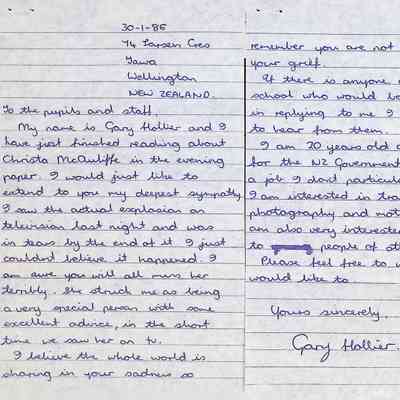 30-1-86
74 Larsen Cres
Tawa
Wellington
NEW ZEALAND.
To the pupils and staff,
My name is Gary Hollier and I
have just finished reading about
Christa McAuliffe in the evening
paper. I would just like to
extend to you my deepest sympathy
I saw the actual explosion on
television last night and was
in tears by the end of it I just
couldn't believe it happened. I
am sure you will all miss her
terribly. She struck me as being
a very special person with some
excellent advice, in the short
time we saw her on tv.
I believe the whole world is
sharing in your sadness so
remember you are not
your grief.
If there is anyone
school who would
in replying to me I
to hear from them.
I am 20 years old
for the NZ Government
a job I dont
I am interested in
photography and
am also very
to people of
Please feel free to
would like to.
Yours sincerely,
Gary Hollier.